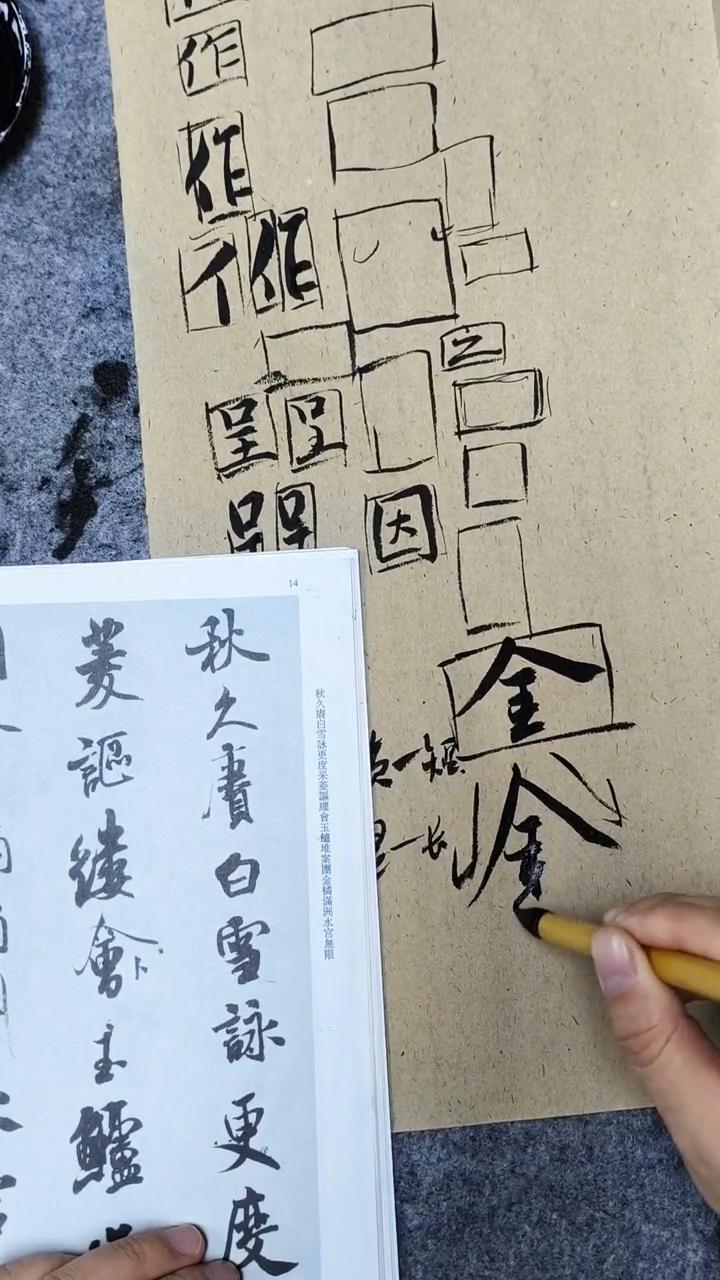 作
作
作
之
呈 呈
因
全
金
一短
一长
14
秋久賡白雪詠更度采菱謳縷會玉鱸堆案團金橘滿洲水宮無限
秋久賡白雪詠更度
菱謳縷會卜玉鱸